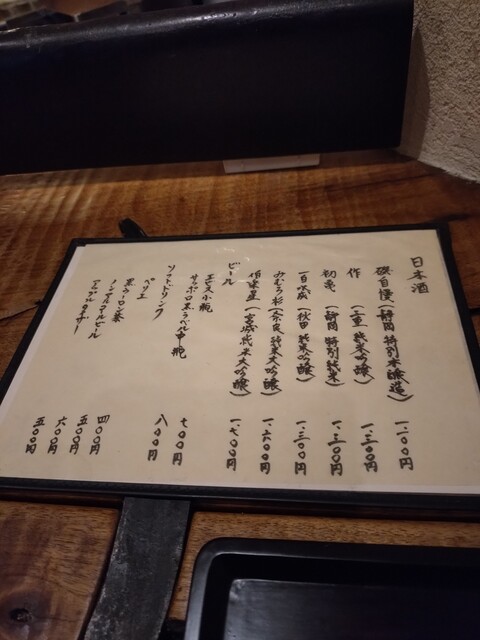 日本酒
磯自慢（静岡 特別本醸造） 一、一〇〇円
作（三重 純米吟醸） 一、三〇〇円
初亀（静岡 特別純米） 一、三〇〇円
一白水成（秋田 純米吟醸） 一、三〇〇円
みむろ杉（奈良 純米大吟醸） 一、六〇〇円
伯楽星（宮城 純米大吟醸） 一、七〇〇円
ビール
エビス小瓶 七〇〇円
サッポロ黒ラベル中瓶 八〇〇円
ソフトドリンク
ペリエ 四〇〇円
黒ウーロン茶 五〇〇円
ノンアルコールビール 六〇〇円
五〇〇円